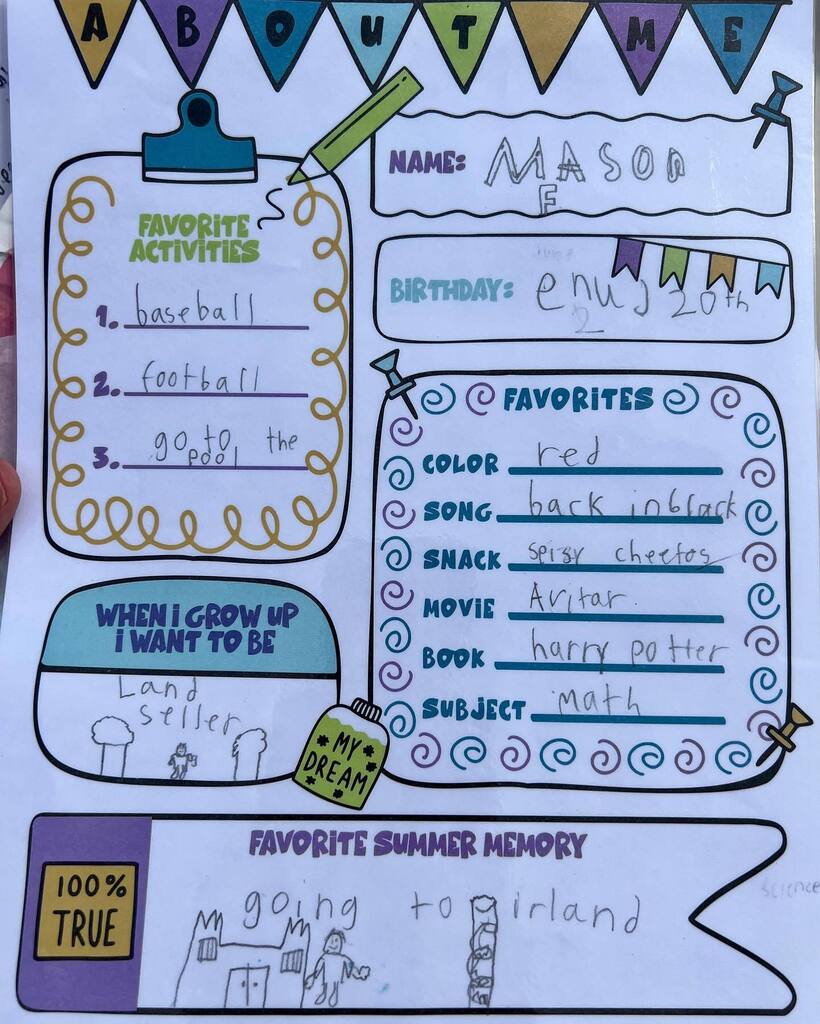 ABOUT ME
NAME: MASON
F
FAVORITE
ACTIVITIES
1. baseball
2. football
3. go to the
pool
BIRTHDAY: 20th
2
FAVORITES
COLOR red
SONG back in black
SNACK cheetos
MOVIE Avitar.
BOOK harry potter
SUBJECT math
WHEN I GROW UP
I WANT TO BE
Land
seller
MY
DREAM
FAVORITE SUMMER MEMORY
100%
TRUE
going to irland
science